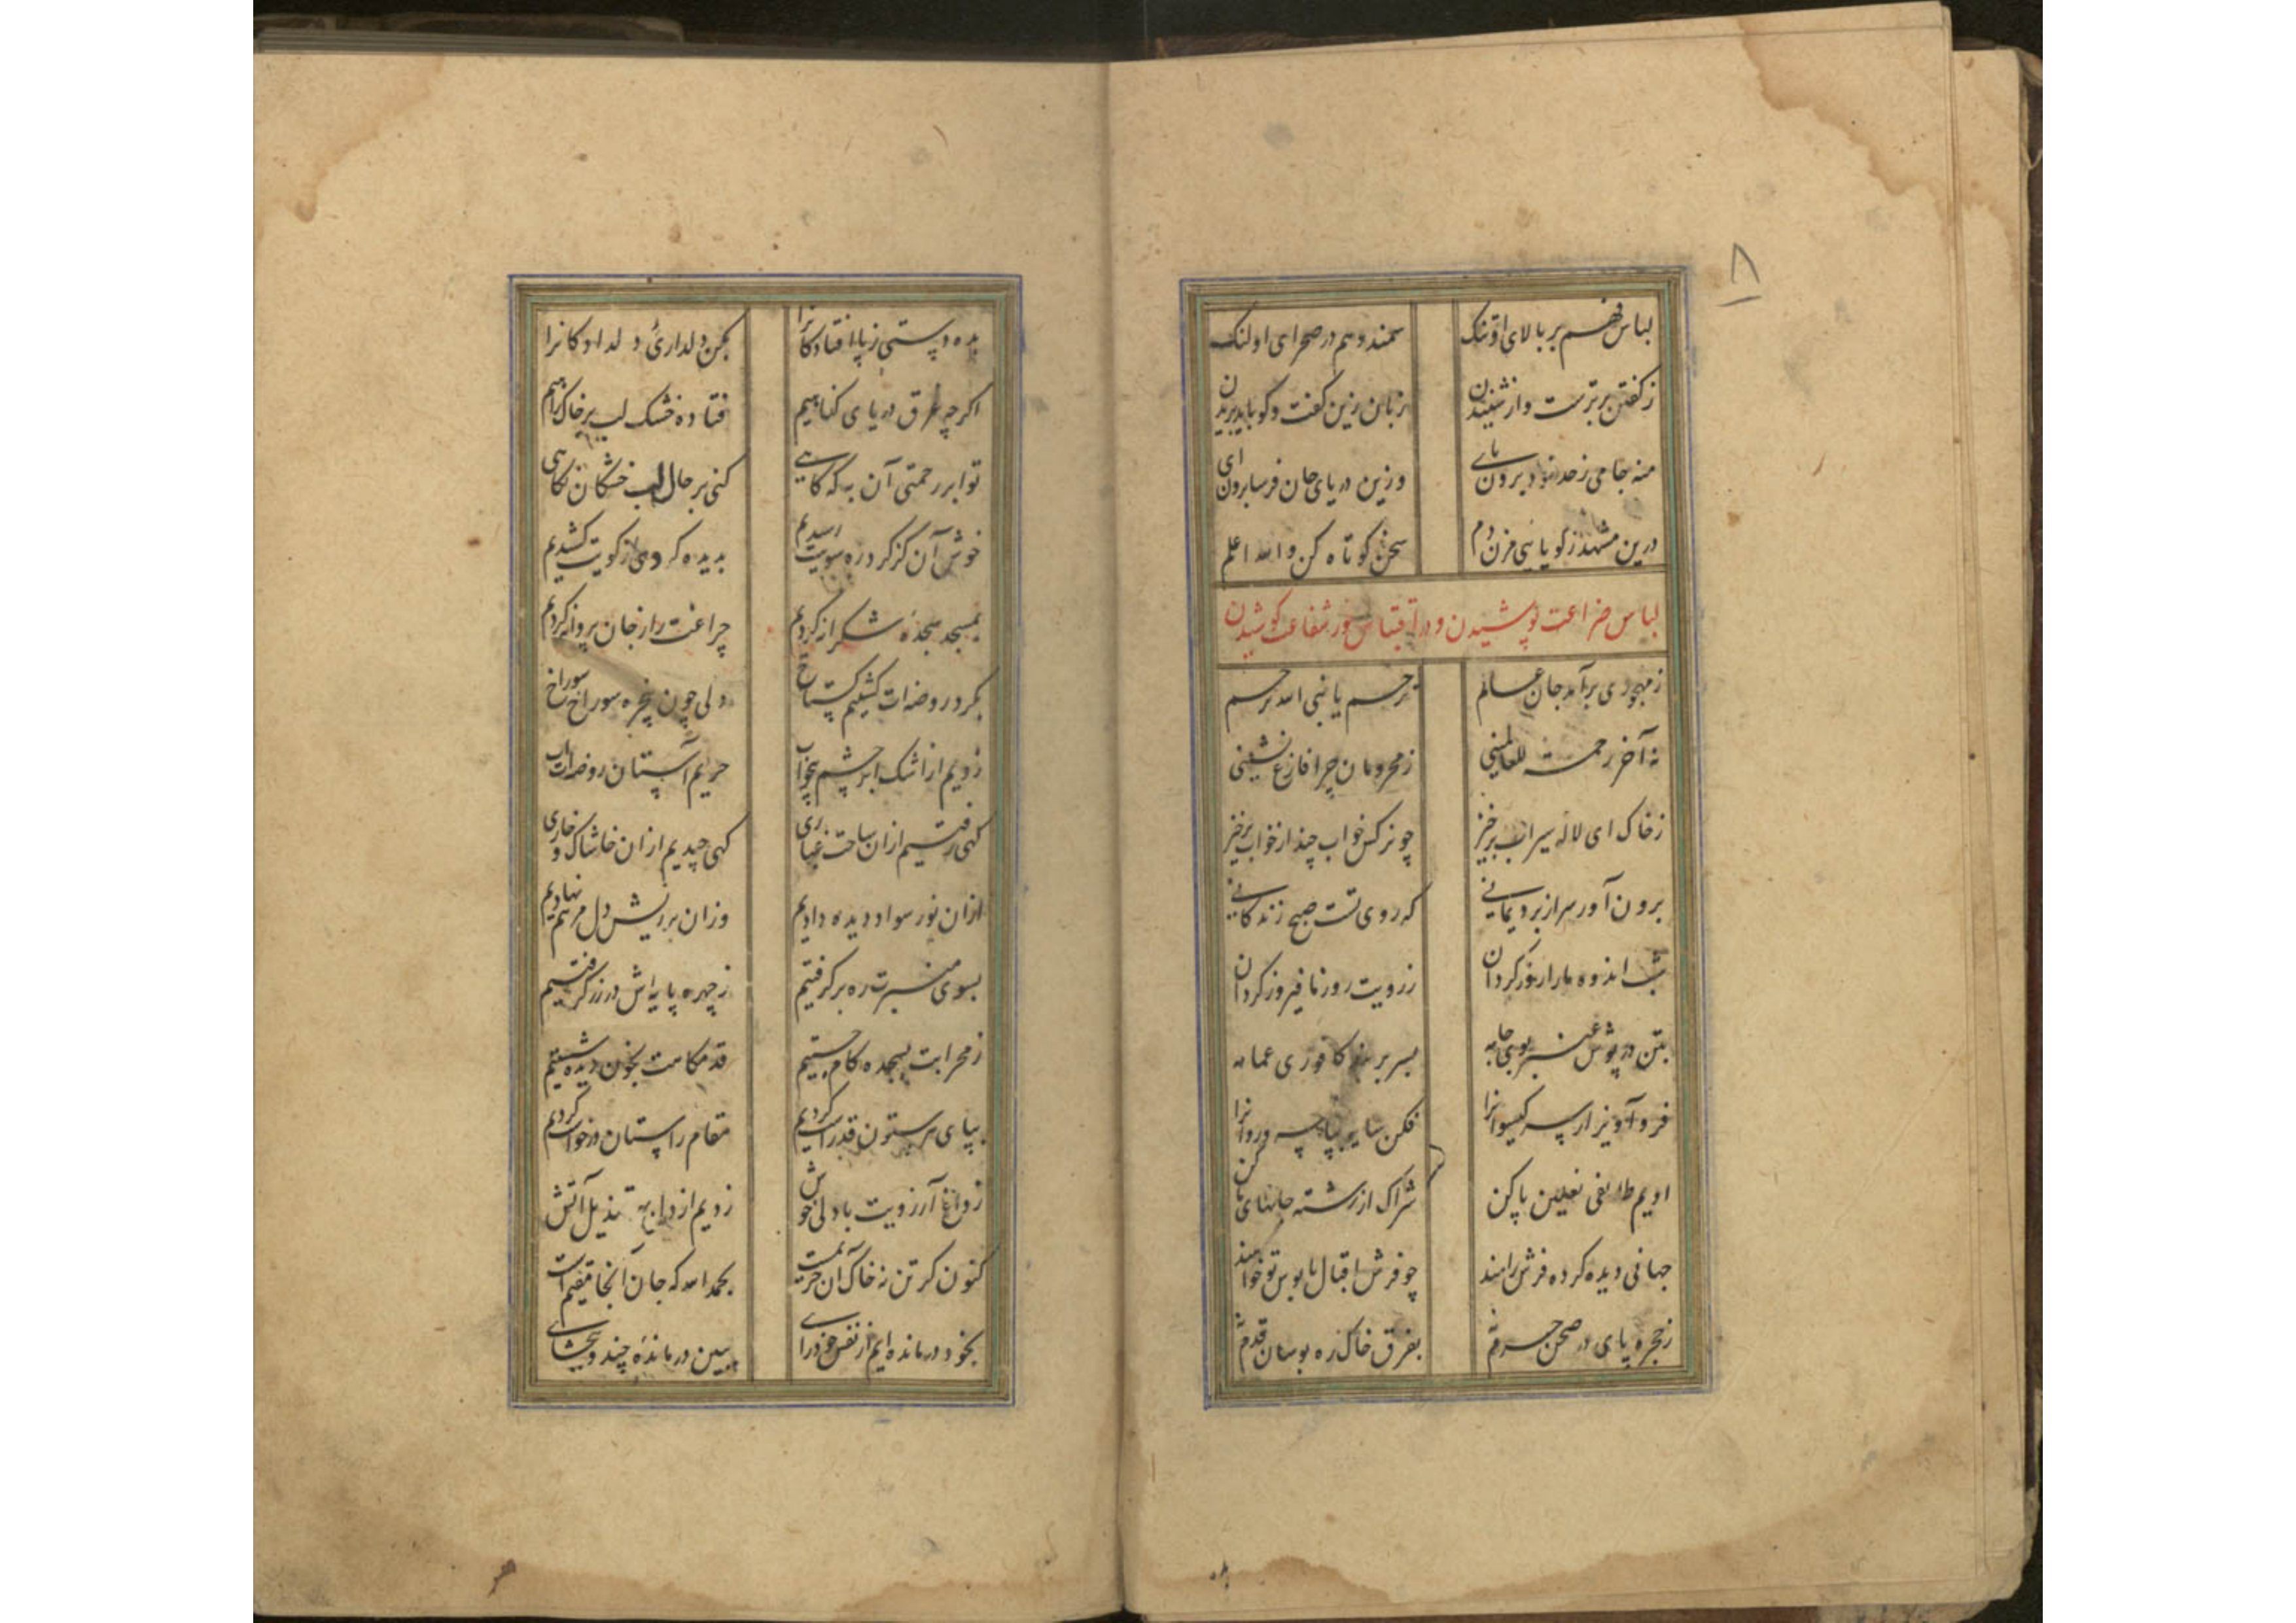 ۸
لباس فهم بر بالای او تنک سمند وهم در صحرای او لنک
ز کفتن برترست و از شنیدن زبان زین کفت و کو باید بریدن
منه جامی ز حد خود برون پای وزین دریای جان فرسا برون ای
درین مشهد ز کویایی مزن دم سخن کوتاه کن والله اعلم
لباس ضراعت پوشیدن و در اقتباس نور شفاعت کوشیدن
ز مهجوری برآمد جان عالم ترحم یا نبی الله ترحم
نه آخر رحمة للعالمینی ز محرومان چرا فارغ نشینی
ز خاک ای لاله سیراب برخیز چو نرکس خواب چند از خواب برخیز
برون آور سر از برد یمانی که روی تست صبح زندکانی
شب اندوه ما را روز کردان ز رویت روز ما فیروز کردان
بتن در پوش عنبر بوی جامه بسر بربند کافوری عمامه
فرو آویز از سر کیسوانرا فکن سایه بپا سرو روانرا
ادیم طائفی نعلین پا کن شراک از رشته جانهای ما کن
جهانی دیده کرده فرش راهند چو فرش اقبال پابوس تو خواهند
ز حجره پای در صحن حرم نه بفرق خاک ره بوسان قدم نه
بده دستی ز پا افتادکانرا بکن دلداریٔ دلدادکانرا
اکر چه غرق دریای کناهیم فتاده خشک لب بر خاک راهیم
تو ابر رحمتی آن به که کاهی کنی بر حال لب خشکان نکاهی
خوش آن کز کرد ره سویت رسیدیم بدیده کردی از کویت کشیدیم
بمسجد سجدهٔ شکرانه کردیم چراغت را ز جان پروانه کردیم
بکرد روضه‌ات کشتیم کستاخ دلی چون پنجره سوراخ سوراخ
زدیم از اشک ابر چشم بیخواب حریم آستان روضه‌ات آب
کهی رفتیم ازان ساحت غباری کهی چیدیم ازان خاشاک و خاری
ازان نور سواد دیده دادیم وزان بر ریش دل مرهم نهادیم
بسوی منبرت ره بر کرفتیم ز چهره پایه‌اش در زر کرفتیم
ز محرابت بسجده کام جستیم قدمکاهت بخون دیده شستیم
بپای هر ستون قد راست کردیم مقام راستان درخواست کردیم
ز داغ آرزویت با دل خوش زدیم از دل بهر قندیل آتش
کنون کر تن نه خاک آن حریمست بحمدالله که جان آنجا مقیم است
بخود در مانده‌ایم از نفس خود رای ببین در ماندهٔ چند و ببخشای